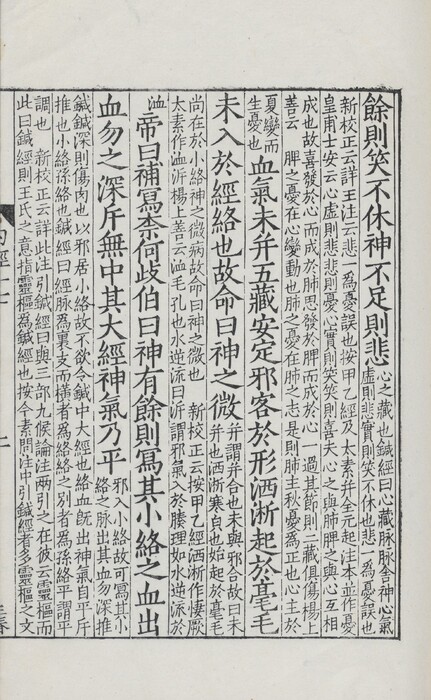 餘則笑不休神不足則悲
心之藏也鍼經曰心藏脉脉舍神心氣
虛則悲實則笑不休也悲一為憂誤也
新校正云詳王注云悲一為憂誤也按甲乙經及太素并全元起注本並作憂
皇甫士安云心虛則悲悲則憂心實則笑笑則喜夫心之與肺脾之與心互相
成也故喜發於心而成於肺思發於脾而成於心一過其節則二藏俱傷楊上
善云脾之憂在心變動也肺之憂在肺之志是則肺主秋憂為正也心主於
夏變而
生憂也
血氣未并五藏安定邪客於形洒淅起於毫毛
未入於經絡也故命曰神之微
并謂并合也未與邪合故曰未
并也洒淅寒皃也始起於毫毛
尚在於小絡神之微病故命曰神之微也 新校正云按甲乙經洒淅作悽厥
太素作洫泝楊上善云洫毛孔也水逆流曰泝謂邪氣入於腠理如水逆流於
洫
帝曰補寫柰何歧伯曰神有餘則寫其小絡之血出
血勿之深斥無中其大經神氣乃平
邪入小絡故可寫其小
絡之脉出其血勿深推
鍼鍼深則傷肉也以邪居小絡故不欲令鍼中大經也絡血既出神氣自平斥
推也小絡孫絡也鍼經曰經脉為裏支而橫者為絡絡之別者為孫絡平謂平
調也 新校正云詳此注引鍼經曰與三部九候論注兩引之在彼云靈樞而
此曰鍼經則王氏之意指靈樞為鍼經也按今素問注中引鍼經者多靈樞之文